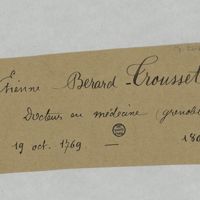 Etienne Berard-Trousset
Docteur en médecine (Grenoble
19 oct. 1769 — 180